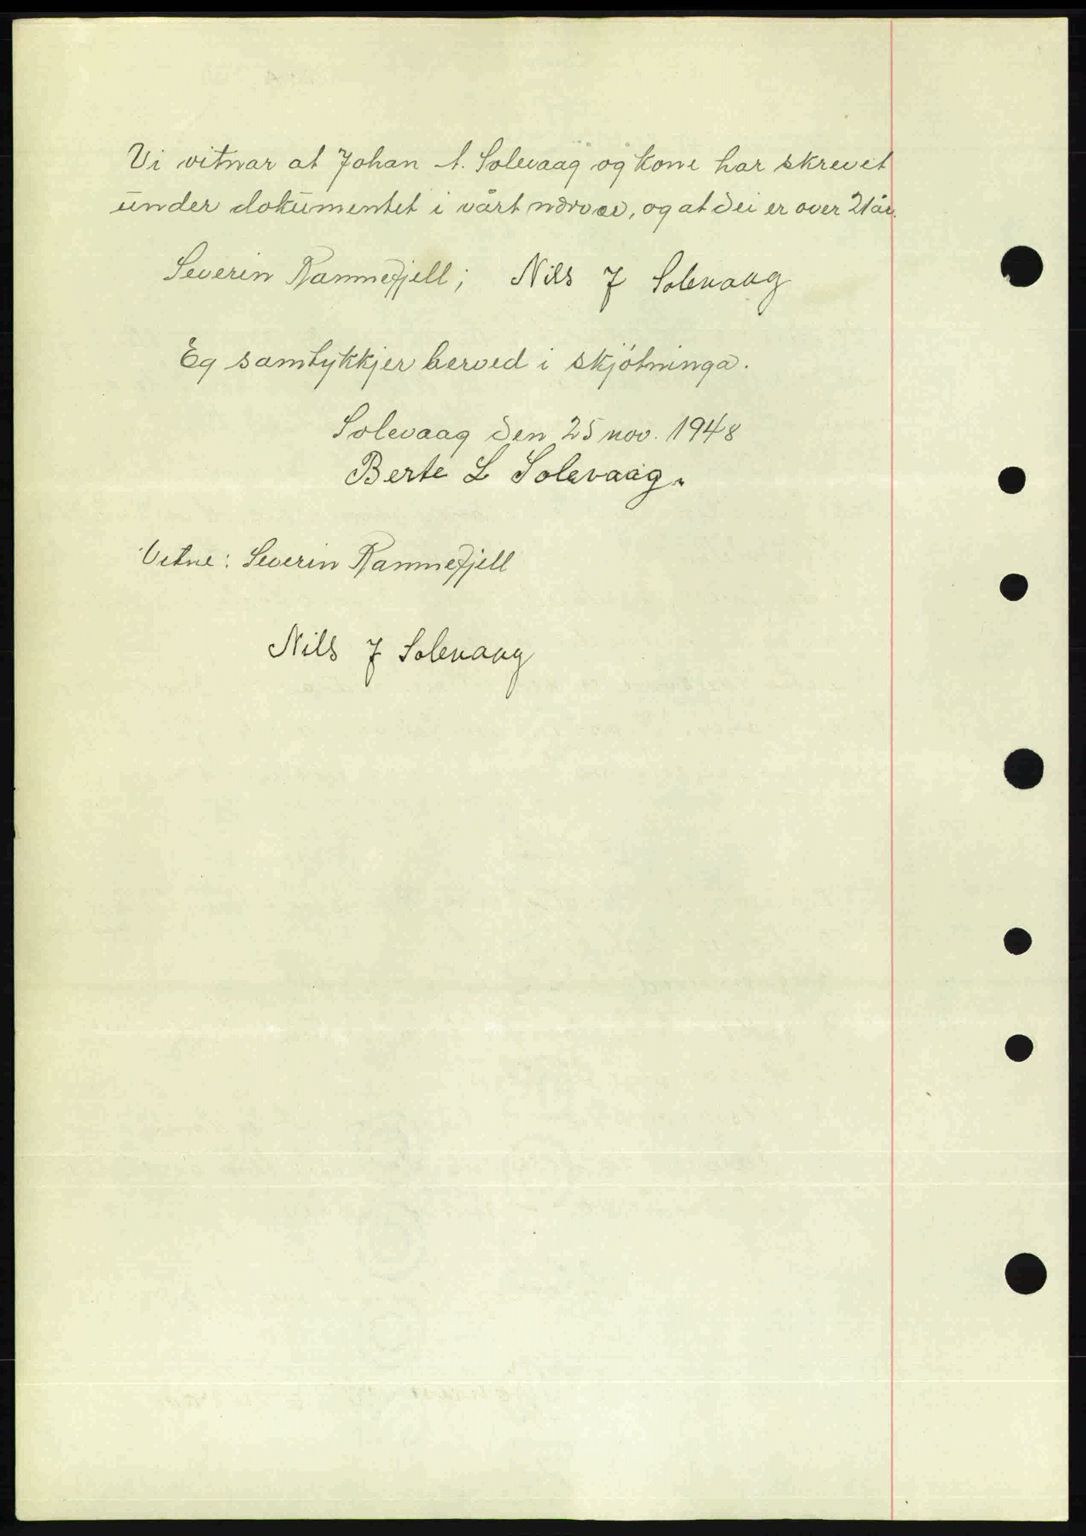 Vi vitnar at Johan A. Solevaag og kone har skrevet
under dokumentet i vårt nærvær, og at dei er over 21 år.
Severin Rammefjell; Nils J Solevaag
Eg samtykkjer herved i skjötninga.
Solevaag den 25 nov. 1948
Berte L Solevaag.
Vitne: Severin Rammefjell
Nils J Solevaag